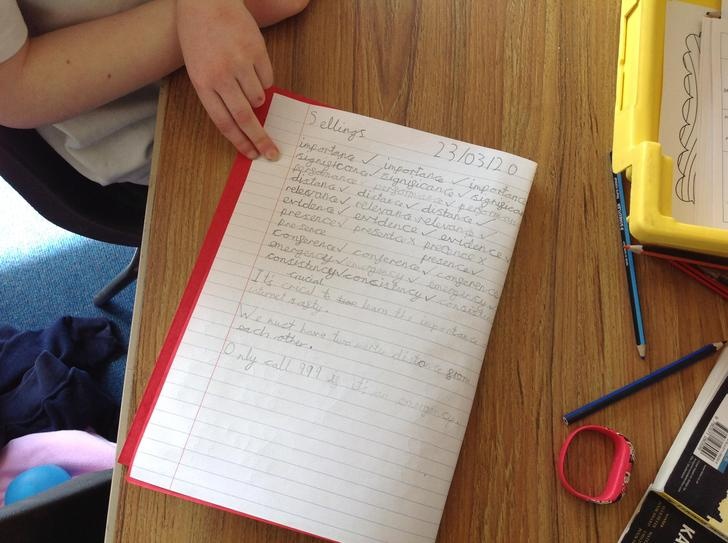 Sellings 23/03/20
importance ✓ importance ✓ importance
significance ✓ significance ✓ significan
performance performance ✓ performan
distance ✓ distance ✓ distance ✓
relevance ✓ relevance relevance ✓
evidence ✓ evidence ✓ evidence ✓
presence ✓ presenta x precence x
presence presence ✓
conference ✓ conference ✓ conference
emergency ✓ emergency ✓ emergency ✓
consistency ✓ consistency ✓ consisten
crucial
It's crucial to learn the importance
internet safty.
We must have two metre distance from
each other.
Only call 999 if it's an emergency.
KA